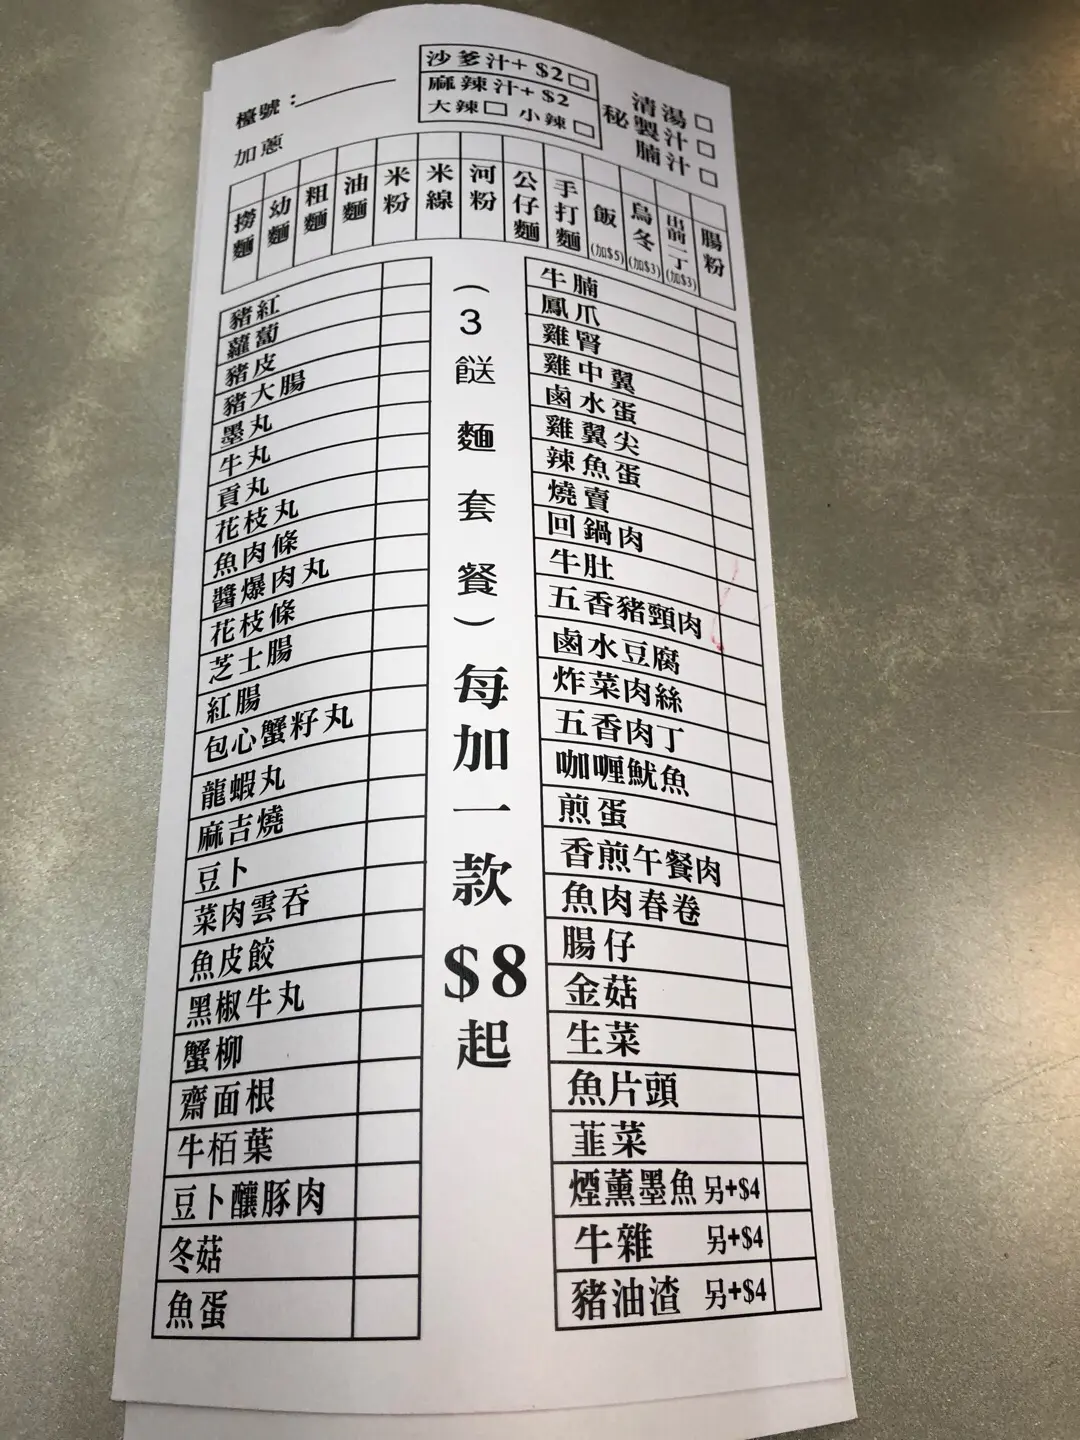 檯號：
加蔥
沙爹汁+ $2
麻辣汁+ $2
大辣 小辣
清湯
秘製汁
腩汁
撈麵
幼麵
粗麵
油麵
米粉
米線
河粉
公仔麵
手打麵
飯(加$5)
烏冬(加$3)
出前一丁(加$3)
腸粉
豬紅
蘿蔔
豬皮
豬大腸
墨丸
牛丸
貢丸
花枝丸
魚肉條
醬爆肉丸
花枝條
芝士腸
紅腸
包心蟹籽丸
龍蝦丸
麻吉燒
豆卜
菜肉雲吞
魚皮餃
黑椒牛丸
蟹柳
齋面根
牛栢葉
豆卜釀豚肉
冬菇
魚蛋
（3餸麵套餐）每加一款$8起
牛腩
鳳爪
雞腎
雞中翼
鹵水蛋
雞翼尖
辣魚蛋
燒賣
回鍋肉
牛肚
五香豬頸肉
鹵水豆腐
炸菜肉絲
五香肉丁
咖喱魷魚
煎蛋
香煎午餐肉
魚肉春卷
腸仔
金菇
生菜
魚片頭
韮菜
煙薰墨魚 另+$4
牛雜 另+$4
豬油渣 另+$4